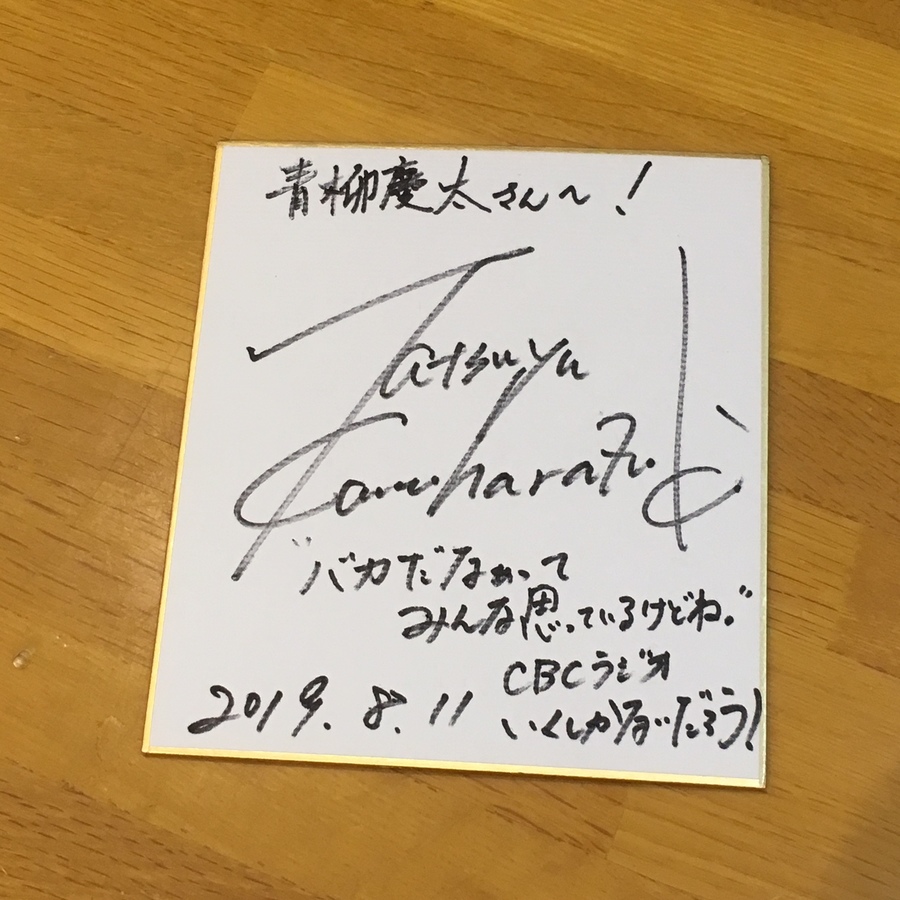 青柳慶太さんへ!
Tatsuya
Kamoharazuki
"バカだなぁって
みんな思っているけどね。"
CBCラジオ
いくしかないだろう!
2019.8.11